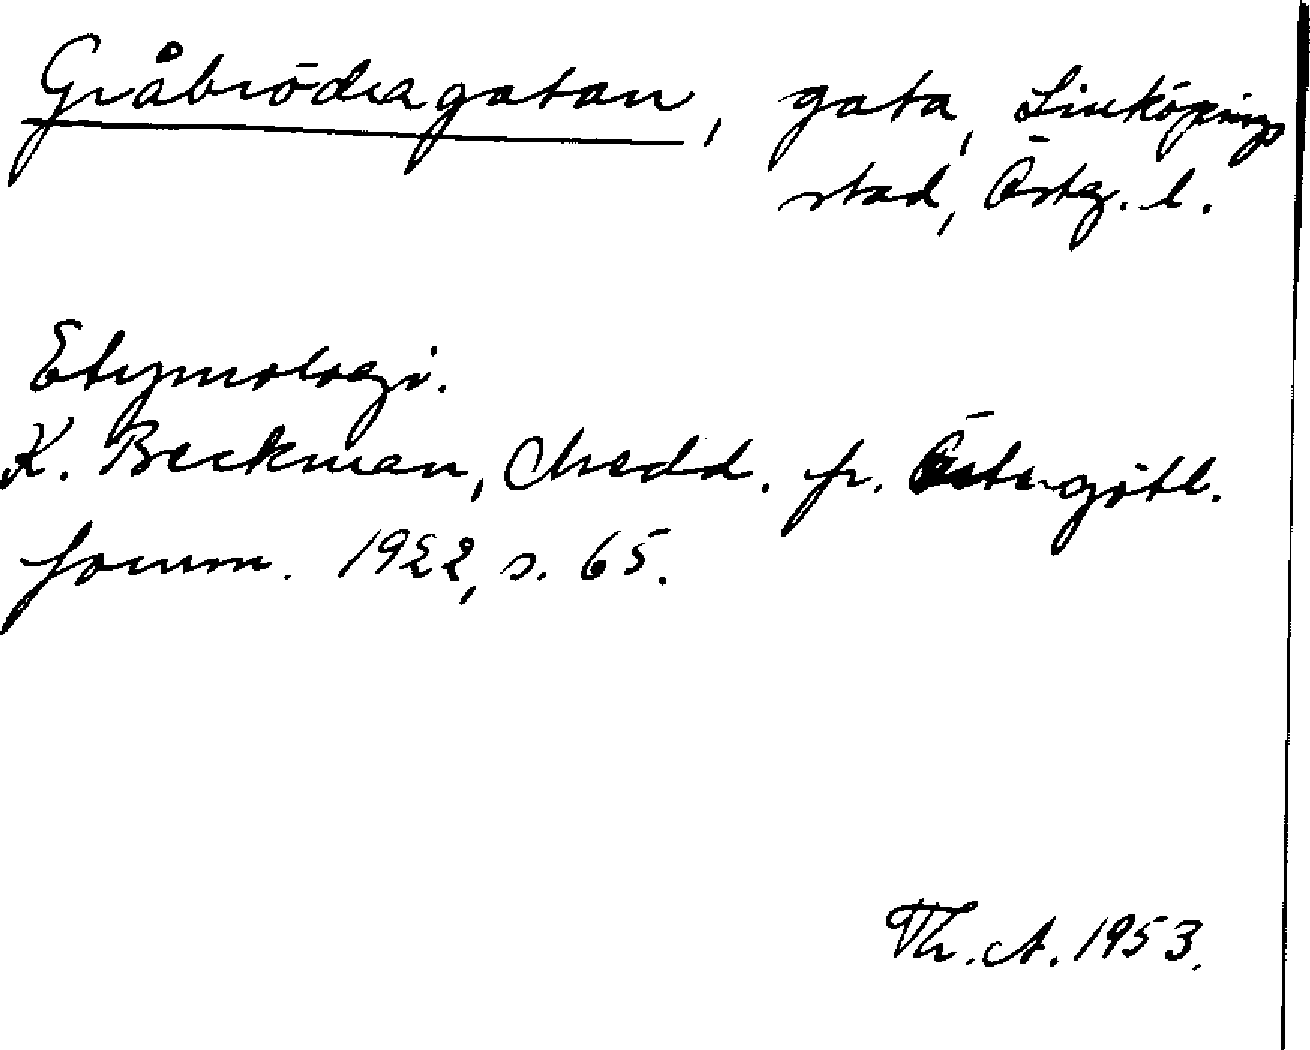 Gråbrödragatan, gata, Linköpings
stad, Östg. l.
Etymologi.
K. Beckman, Medd. fr. Östergötl.
fornm. 1922, s. 65.
Th. A. 1953.